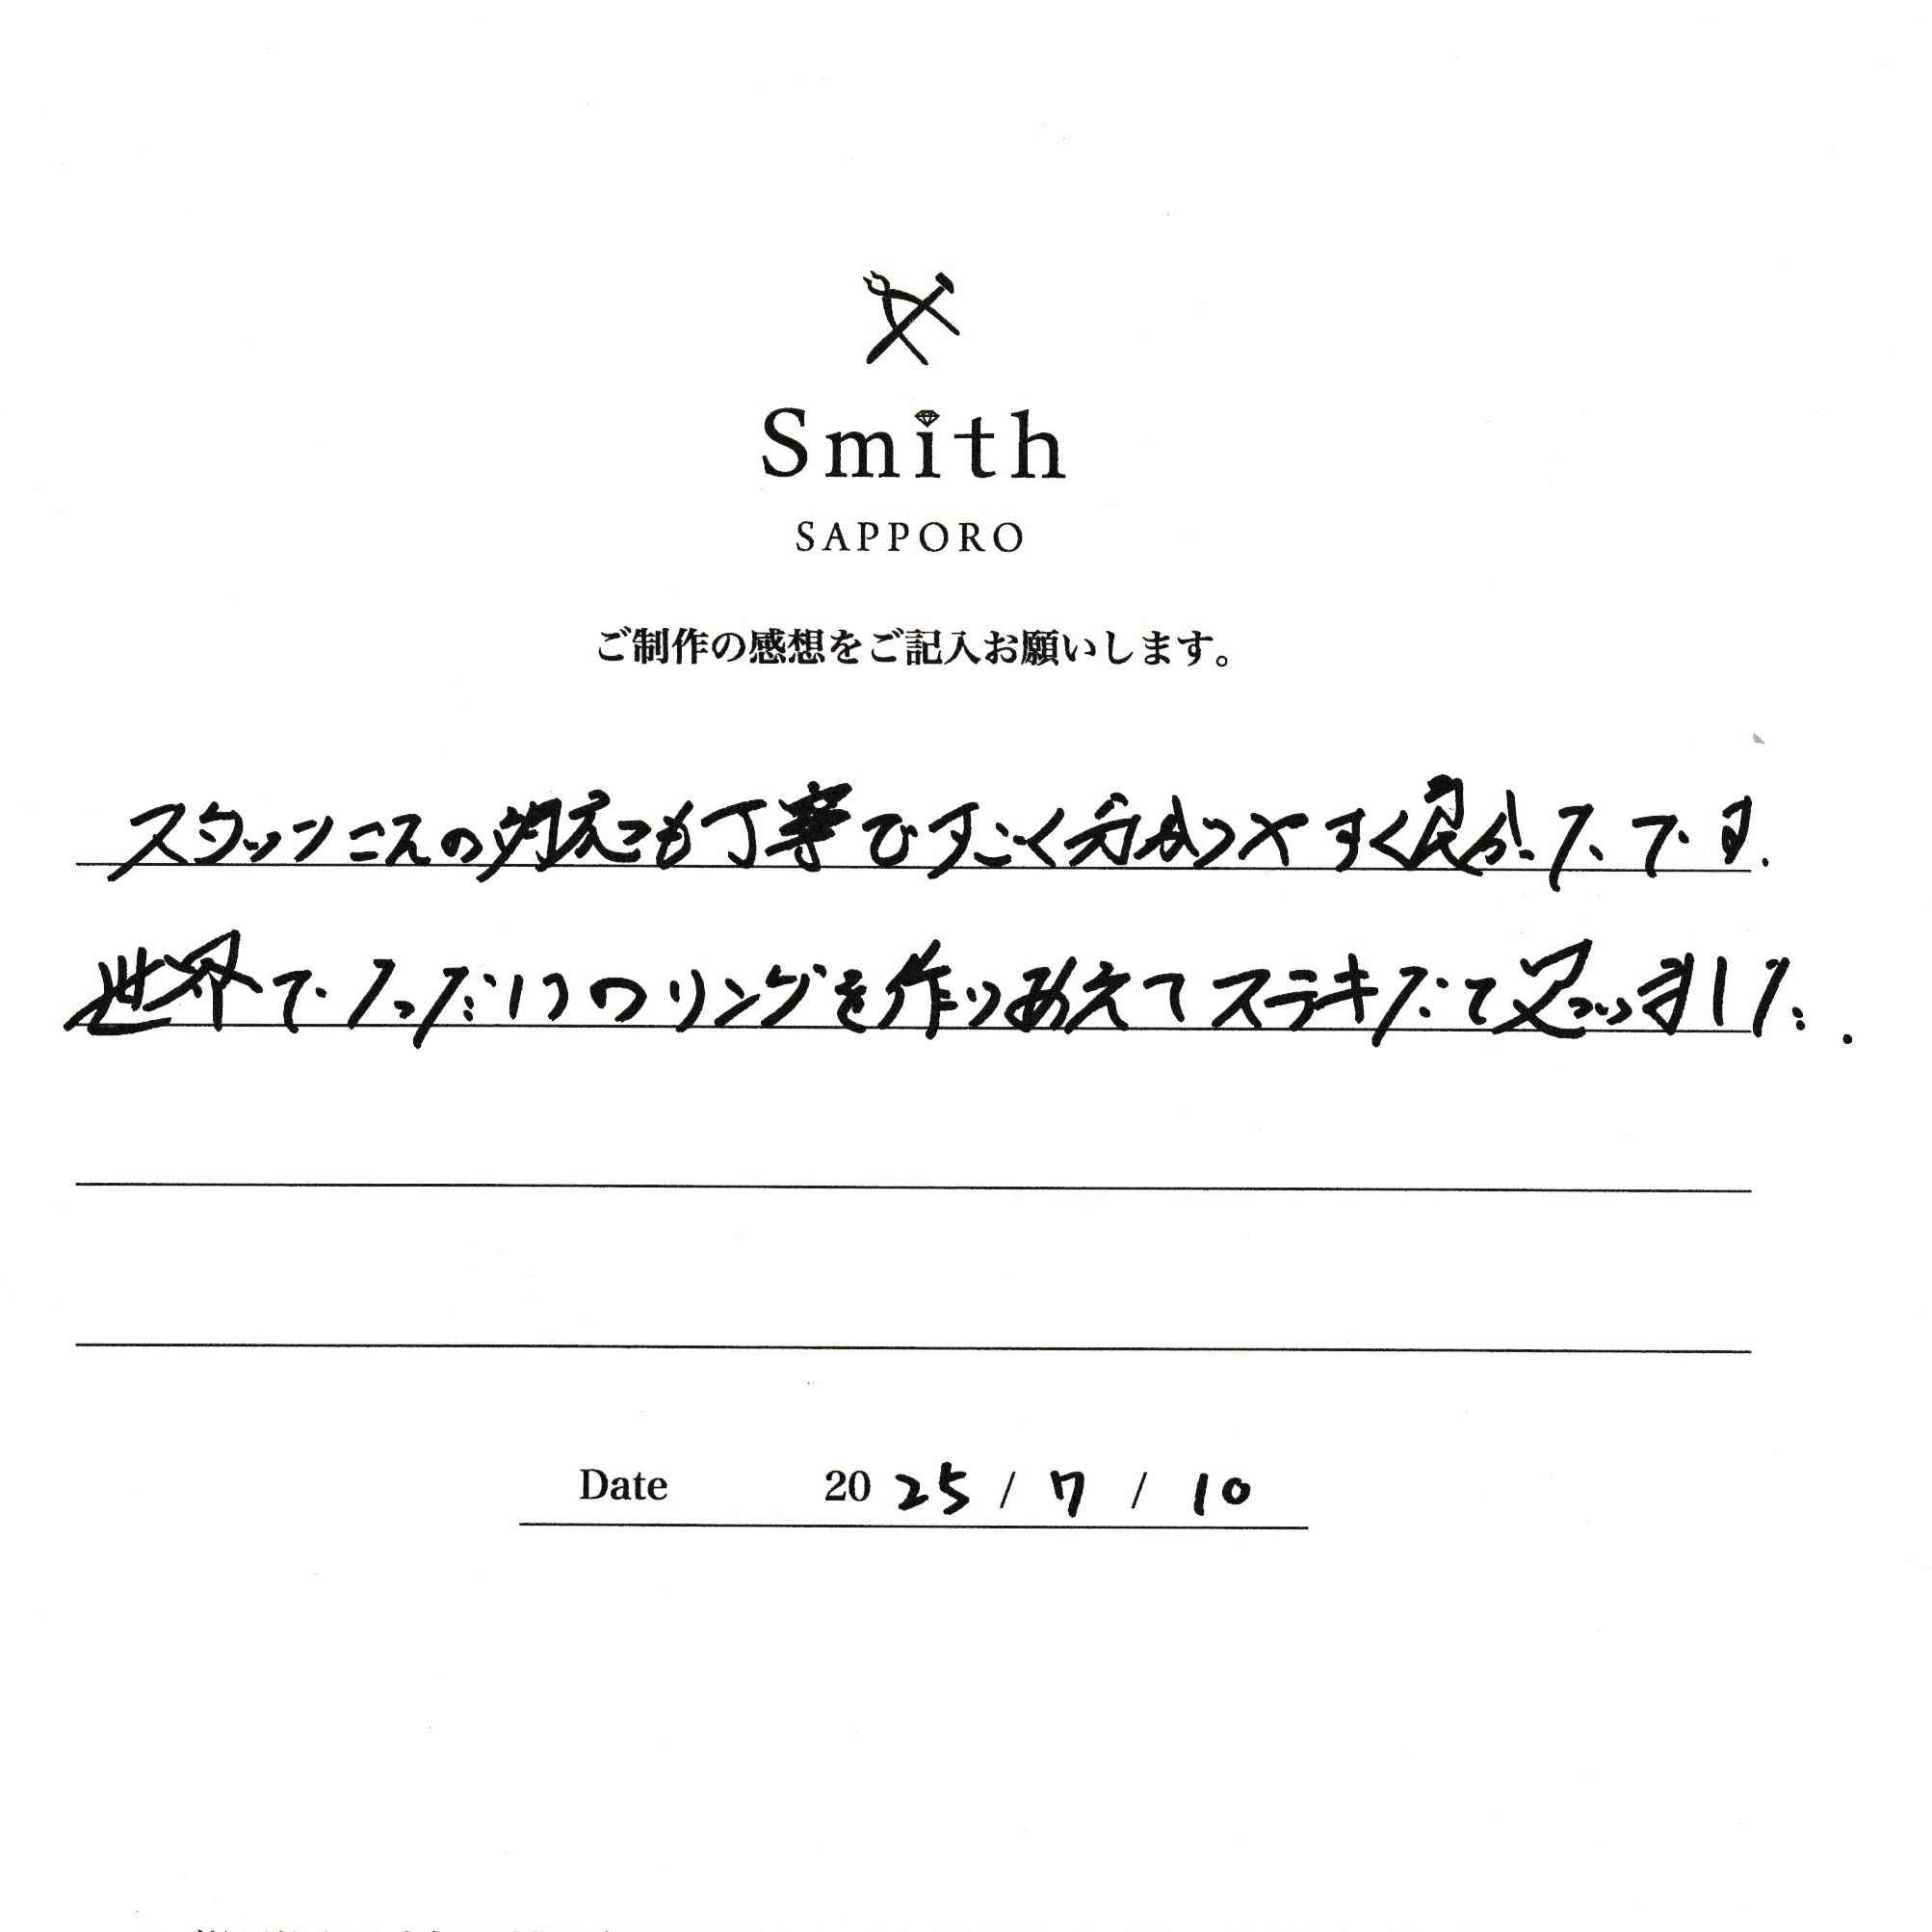 Smith
SAPPORO
ご制作の感想をご記入お願いします。
スタッフさんの対応も丁寧ですごく分かりやすく良かったです.
世界で たっだ1つのリングを作りあえてステキだて思いました.
Date 2025 / 7 / 10